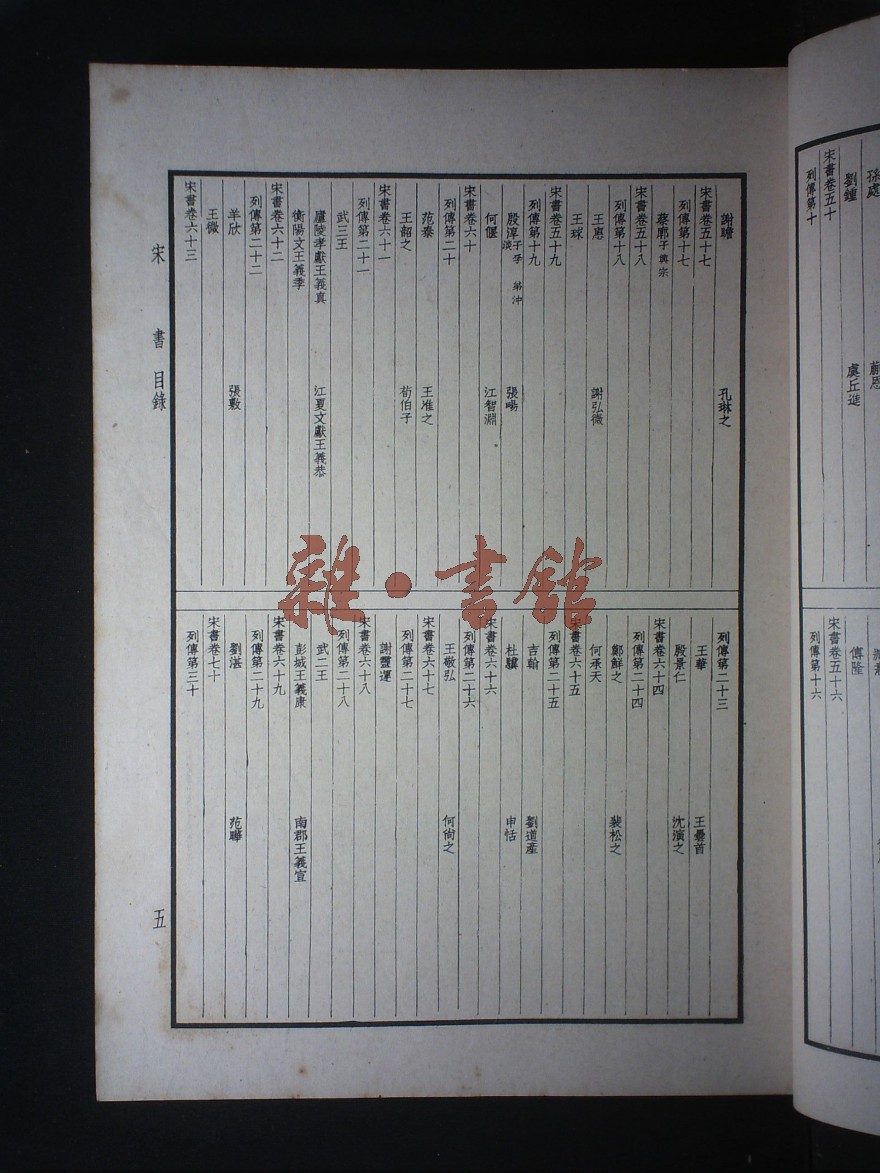 孫處
劉鍾 虞丘進
宋書卷五十
列傳第十
傅隆
宋書卷五十六
列傳第十六
謝瞻 孔琳之
宋書卷五十七
列傳第十七
蔡廓 子興宗
宋書卷五十八
列傳第十八
王惠 謝弘微
王球
宋書卷五十九
列傳第十九
殷淳 子孚 弟沖 淡 張暢
何偃 江智淵
宋書卷六十
列傳第二十
范泰 王准之
王韶之 荀伯子
宋書卷六十一
列傳第二十一
武三王
廬陵孝獻王義真 江夏文獻王義恭
衡陽文王義季
宋書卷六十二
列傳第二十二
羊欣 張敷
王微
宋書卷六十三
列傳第二十三
王華 王曇首
殷景仁 沈演之
宋書卷六十四
列傳第二十四
鄭鮮之 裴松之
何承天
宋書卷六十五
列傳第二十五
吉翰 劉道產
杜驥 申恬
宋書卷六十六
列傳第二十六
王敬弘 何尚之
宋書卷六十七
列傳第二十七
謝靈運
宋書卷六十八
列傳第二十八
武二王
彭城王義康 南郡王義宣
宋書卷六十九
列傳第二十九
劉湛 范曄
宋書卷七十
列傳第三十
宋書 目錄 五
雜·書館